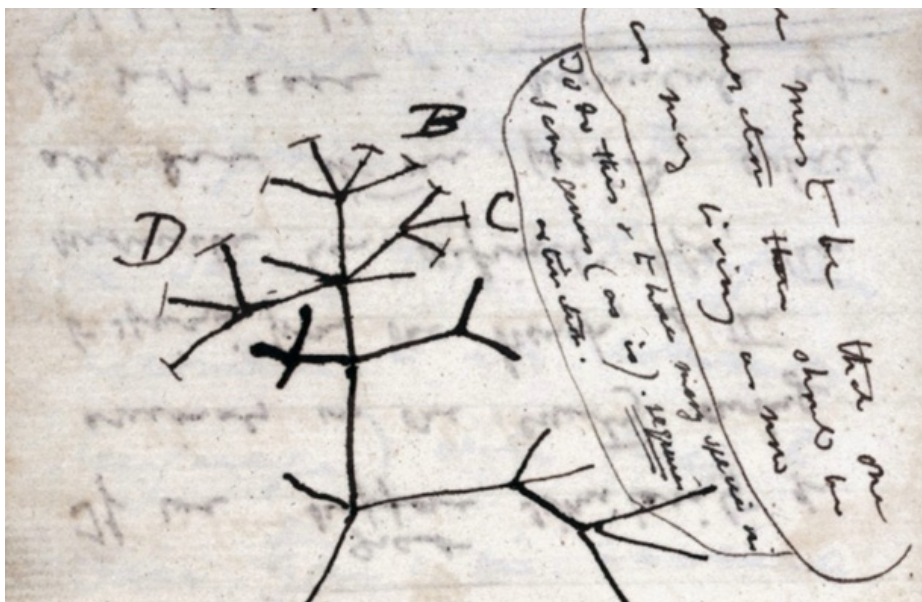 must be that one
eneration then should be
as many living as now
To do this & to have many species in
same genus (as is). requires
extinction.
B
C
D